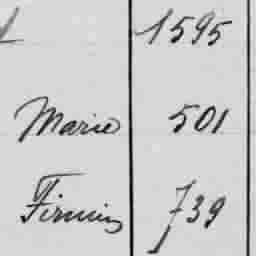 1595
Marie 501
Firmin 739